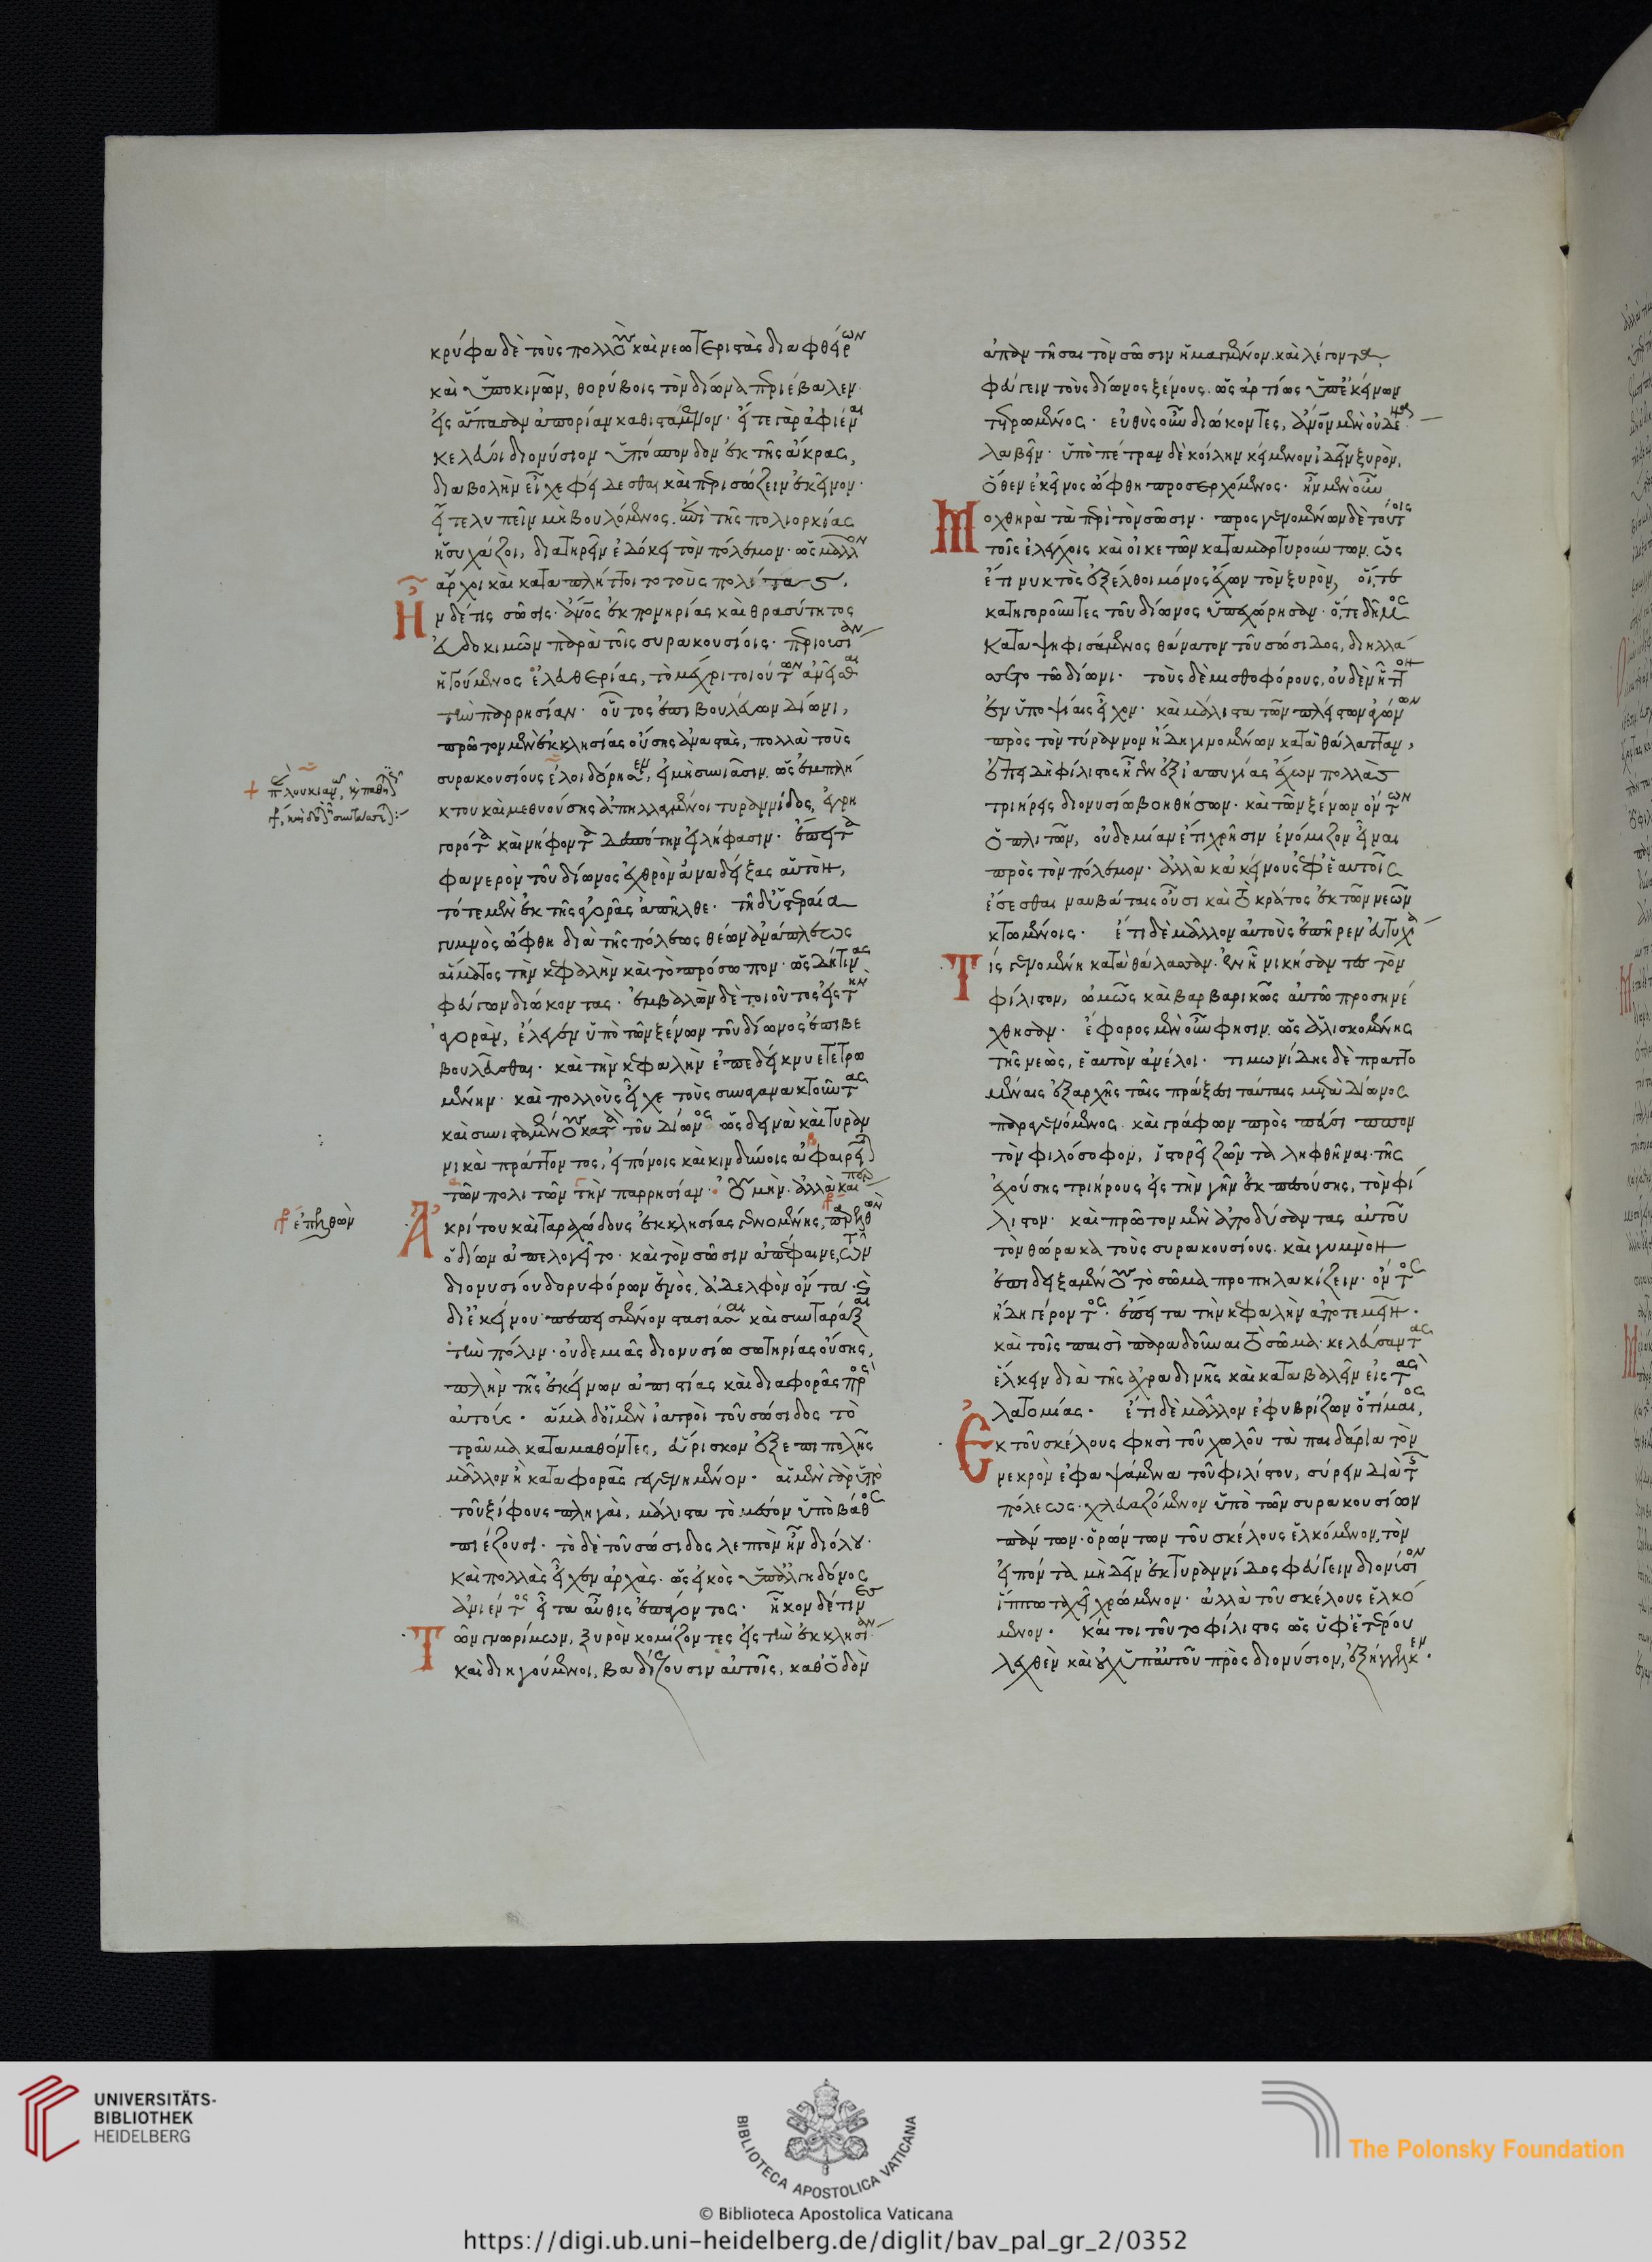 κρύφα δὲ τοὺς πολλοὺς καὶ νεωτεριστὰς διαφθείρων
καὶ ὑποκινῶν, θορύβοις τὸν δίωνα περιέβαλεν·
εἰς ἅπασαν ἀπορίαν καθιστάμενον· εἴτε γὰρ ἀφιέναι
κελεύοι διονύσιον ὑπόσπονδον ἐκ τῆς ἄκρας,
διαβολὴν εἶχε φείδεσθαι καὶ περισώζειν ἐκεῖνον·
εἴτε λυπεῖν μὴ βουλόμενος ἐπὶ τῆς πολιορκίας
ἡσυχάζοι, διατηρεῖν ἐδόκει τὸν πόλεμον· ὡς μᾶλλον
ἄρχοι καὶ καταπλήττοιτο τοὺς πολίτας.
Ἦν δέ τις σῶσις· ἄνθρωπος ἐκ πονηρίας καὶ θρασύτητος
εὐδοκιμῶν παρὰ τοῖς συρακουσίοις· περιουσίαν
ἡγούμενος ἐλευθερίας, τὸ μέχρι τοιούτων ἀνεῖσθαι
τὴν παρρησίαν· οὗτος ἐπιβουλεύων δίωνι,
πρῶτον μὲν ἐκκλησίας οὔσης ἀναστὰς, πολλὰ τοὺς
συρακουσίους ἐλοιδόρησεν, εἰ μὴ συνιᾶσιν ὡς ἐμπλή
κτου καὶ μεθυούσης ἀπηλλαγμένοι τυραννίδος, ἐγρη
γορότα καὶ νήφοντα δεσπότην εἰλήφασιν· ἔπειτα
φανερὸν τοῦ δίωνος ἐχθρὸν ἀναδείξας αὑτὸν,
τότε μὲν ἐκ τῆς ἀγορᾶς ἀπῆλθε· τῇ δ' ὑστεραία
γυμνὸς ὤφθη διὰ τῆς πόλεως θέων ἀνάπλεως
αἵματος τὴν κεφαλὴν καὶ τὸ πρόσωπον· ὡς δή τινας
φεύγων διώκοντας· ἐμβαλὼν δὲ τοιοῦτος εἰς τὴν
ἀγορὰν, ἔλεγεν ὑπὸ τῶν ξένων τοῦ δίωνος ἐπιβε
βουλεῦσθαι· καὶ τὴν κεφαλὴν ἐπεδείκνυε τετρω
μένην· καὶ πολλοὺς εἶχε τοὺς συναγανακτοῦντας
καὶ συνισταμένους κατὰ τοῦ δίωνος ὡς δεινὰ καὶ τυραν
νικὰ πράττοντος, εἰ πόνοις καὶ κινδύνοις ἀφαιρεῖται
τῶν πολιτῶν τὴν παρρησίαν· οὐ μὴν ἀλλὰ καίπερ
Ἀκρίτου καὶ ταραχώδους ἐκκλησίας γενομένης, παρελθὼν
γρ ἐπελθὼν
ὁ δίων ἀπελογεῖτο· καὶ τὸν σῶσιν ἀπέφαινε, τῶν
διονυσίου δορυφόρων ἑνὸς, ἀδελφὸν ὄντα· καὶ
δι' ἐκείνου πεπεισμένον στασιάσαι καὶ συνταράξαι
τὴν πόλιν· οὐδεμιᾶς διονυσίω σωτηρίας οὔσης,
πλὴν τῆς ἐκείνων ἀπιστίας καὶ διαφορᾶς πρὸς
αὑτούς· ἅμα δ' οἱ μὲν ἰατροὶ τοῦ σώσιδος τὸ
τραῦμα καταμαθόντες, εὕρισκον ἐξ ἐπιπολῆς
μᾶλλον ἢ καταφορᾶς γεγενημένον· αἱ μὲν γὰρ ὑπὸ
τοῦ ξίφους πληγαὶ, μάλιστα τὸ μέσον ὑπὸ βάθος
πιέζουσι· τὸ δὲ τοῦ σώσιδος λεπτὸν ἦν διόλου·
καὶ πολλὰς εἶχεν ἀρχὰς· ὡς εἰκὸς ὑπ' ἀλγηδόνος
ἀνιέντος εἶτα αὖθις ἐπάγοντος· ἧκον δέ τινες
Τῶν γνωρίμων, ξυρὸν κομίζοντες εἰς τὴν ἐκκλησίαν
καὶ διηγούμενοι, βαδίζουσιν αὐτοῖς, καθ' ὁδὸν
ἀπαντῆσαι τὸν σῶσιν ἡμαγμένον καὶ λέγοντα,
φεύγειν τοὺς δίωνος ξένους· ὡς ἀρτίως ὑπ' ἐκείνων
τετρωμένος· εὐθὺς οὖν διώκοντες, ἄνθρωπον μὲν οὐδένα
λαβεῖν· ὑπὸ πέτραν δὲ κοίλην κείμενον ἰδεῖν ξυρὸν,
ὅθεν ἐκεῖνος ὤφθη προσερχόμενος· ἦν μὲν οὖν
Μοχθηρὰ τὰ περὶ τὸν σῶσιν· προσγενομένων δὲ τούτοις
τοῖς ἐλέγχοις καὶ οἰκετῶν καταμαρτυρούντων, ὡς
ἔτι νυκτὸς ἐξέλθοι μόνος ἔχων τὸν ξυρὸν, οἵ,τε
κατηγοροῦντες τοῦ δίωνος ὑπεχώρησαν· ὅ,τε δῆμος
καταψηφισάμενος θάνατον τοῦ σώσιδος, διηλλά
σσετο τῶ δίωνι· τοὺς δὲ μισθοφόρους, οὐδὲν ἧττον
ἐν ὑποψίαις εἶχον· καὶ μάλιστα τῶν πλείστων ἀγώνων
πρὸς τὸν τύραννον ἤδη γινομένων κατὰ θάλατταν,
ἐπειδὴ φίλιστος ἧκεν ἐξ ἰαπυγίας ἔχων πολλὰς
τριήρεις διονυσίω βοηθήσων· καὶ τῶν ξένων ὄντων
ὁπλιτῶν, οὐδεμίαν ἔτι χρῆσιν ἐνόμιζον εἶναι
πρὸς τὸν πόλεμον· ἀλλὰ κἀκείνους ἐφ' ἑαυτοῖς
ἔσεσθαι ναυβάταις οὖσι καὶ τὸ κράτος ἐκ τῶν νεῶν
κτωμένοις· ἔτι δὲ μᾶλλον αὐτοὺς ἐπῆρεν εὐτυχία
Τίς γενομένη κατὰ θάλασσαν· ἐν ᾗ νικήσαντες τὸν
φίλιστον, ὠμῶς καὶ βαρβαρικῶς αὐτῶ προσηνέ
χθησαν· ἔφορος μὲν οὖν φησιν ὡς ἁλισκομένης
τῆς νεὼς, ἑαυτὸν ἀνέλοι· τιμωνίδης δὲ πραττο
μέναις ἐξαρχῆς ταῖς πράξεσι ταύταις μετὰ δίωνος
παραγενόμενος καὶ γράφων πρὸς σπεύσιππον
τὸν φιλόσοφον, ἱστορεῖ ζῶντα ληφθῆναι τῆς
ἐχούσης τριήρους εἰς τὴν γῆν ἐκπεσούσης, τὸν φί
λιστον· καὶ πρῶτον μὲν ἀποδύσαντας αὐτοῦ
τὸν θώρακα τοὺς συρακουσίους καὶ γυμνὸν
ἐπιδειξαμένους τὸ σῶμα προπηλακίζειν· ὄντος
ἤδη γέροντος· ἔπειτα τὴν κεφαλὴν ἀποτεμεῖν·
καὶ τοῖς παισὶ παραδοῦναι τὸ σῶμα· κελεύσαντας
ἕλκειν διὰ τῆς ἀχραδινῆς καὶ καταβαλεῖν εἰς τὰς
λατομίας· ἔτι δὲ μᾶλλον ἐφυβρίζων ὁ τίμαιος,
Ἐκ τοῦ σκέλους φησὶ τοῦ χωλοῦ τὰ παιδάρια τὸν
νεκρὸν ἐφαψάμενα τοῦ φιλίστου, σύρειν διὰ τῆς
πόλεως· χλευαζόμενον ὑπὸ τῶν συρακουσίων
πάντων· ὁρώντων τοῦ σκέλους ἑλκόμενον, τὸν
εἰπόντα μὴ δεῖν ἐκ τυραννίδος φεύγειν διονύσιον
ἵππω ταχεῖ χρώμενον· ἀλλὰ τοῦ σκέλους ἑλκό
μενον· καίτοι τοῦτο φίλιστος ὡς ὑφ' ἑτέρου
λεχθὲν καὶ οὐχ ὑπ' αὐτοῦ πρὸς διονύσιον, ἐξήγγελκεν·
UNIVERSITÄTS-
BIBLIOTHEK
HEIDELBERG
BIBLIOTECA APOSTOLICA VATICANA
The Polonsky Foundation
© Biblioteca Apostolica Vaticana
https://digi.ub.uni-heidelberg.de/diglit/bav_pal_gr_2/0352